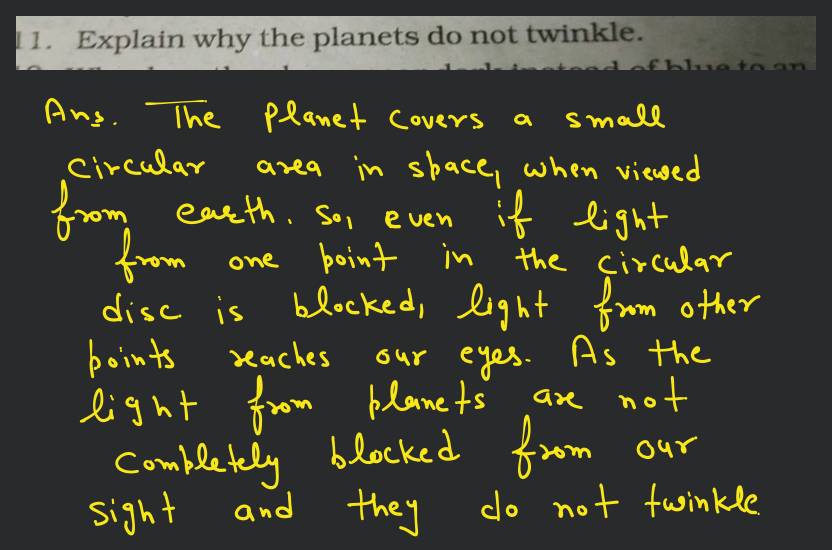 11. Explain why the planets do not twinkle.
Ans. The planet covers a small
circular area in space, when viewed
from earth. So, even if light
from one point in the circular
disc is blocked, light from other
points reaches our eyes. As the
light from planets are not
completely blocked from our
sight and they do not twinkle.